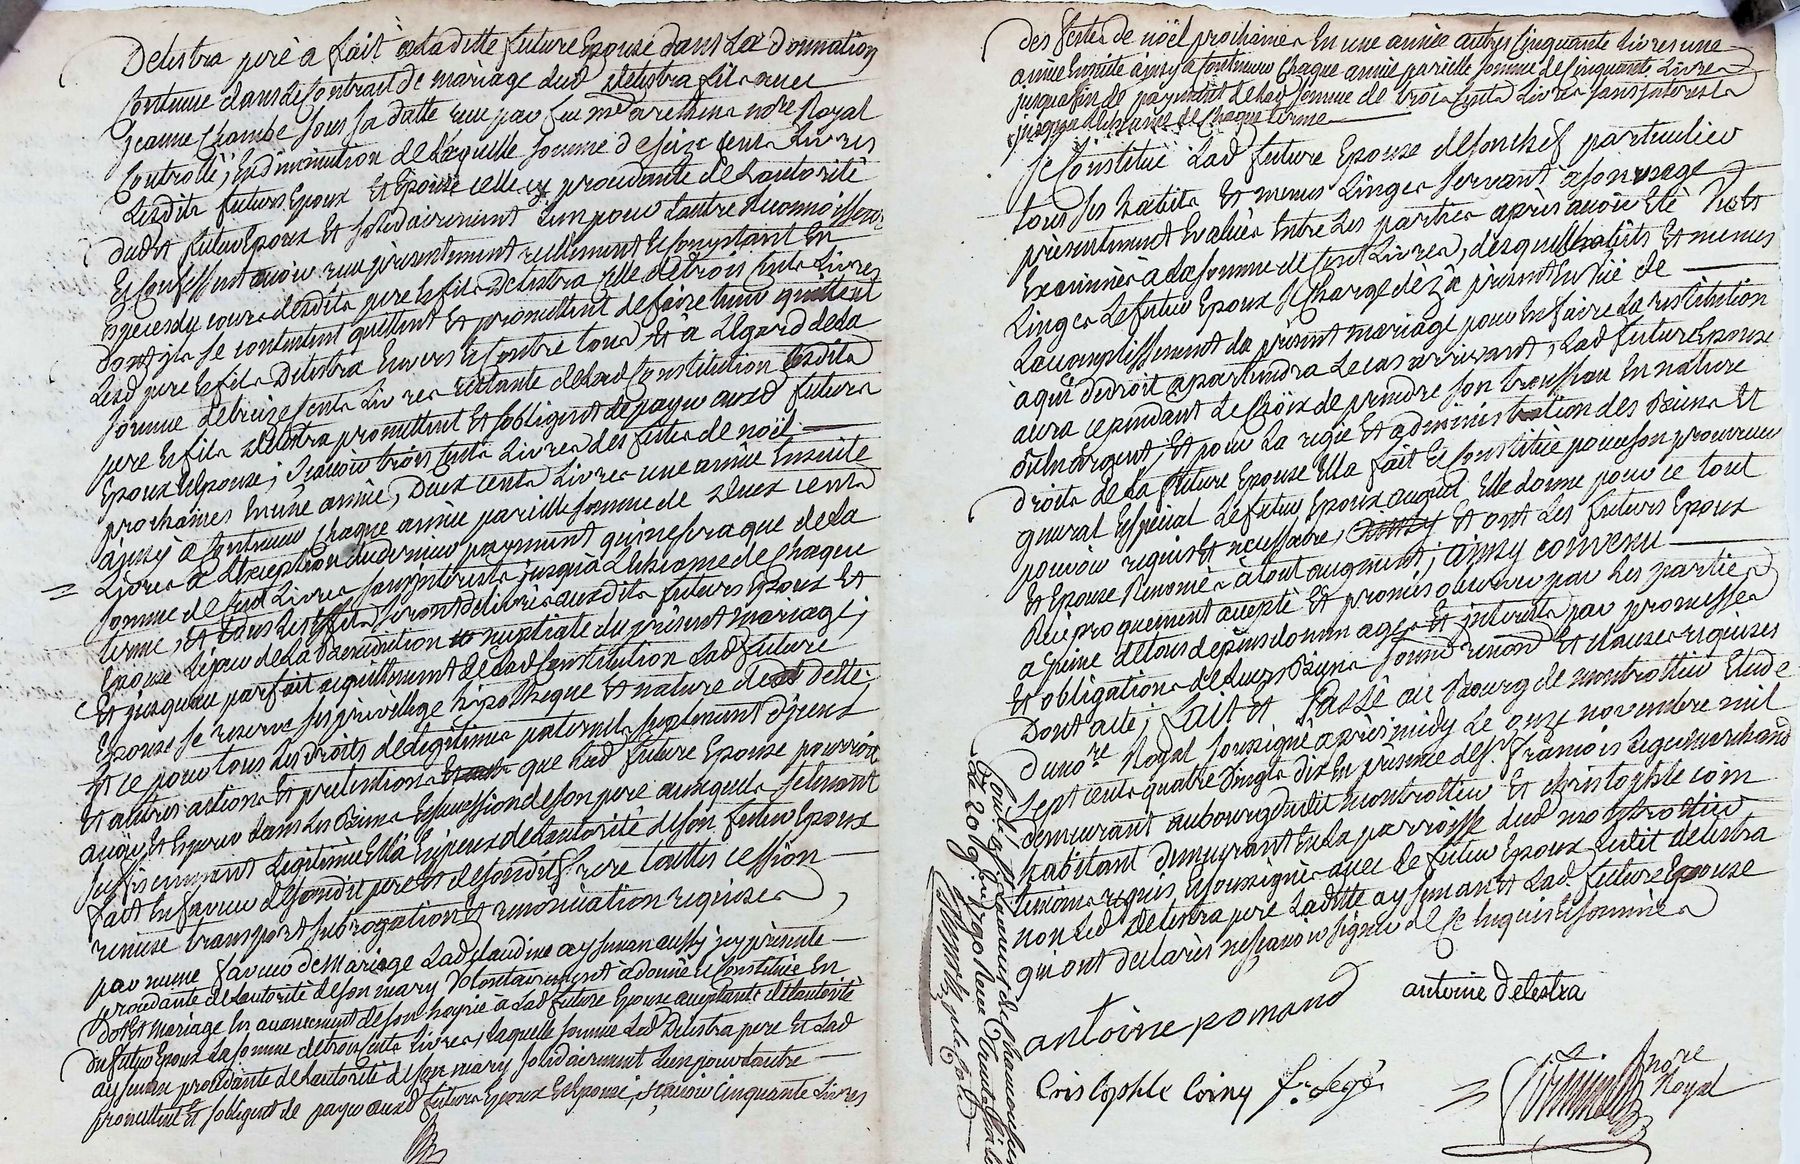 Delestra père a fait a Laditte future Epouse dans La Donnation
Contenue dans le Contrat de mariage dud delestra fils avec
jeanne Chambe sous sa datte reçu par feu me notre Royal
Controllé, En diminution de Laquelle somme de seize cents Livres
Lesdits futurs Epoux Et Epouse celle cy procedante de Lautorité
dud futur Epoux Et solidairement Lun pour Lautre Reconnoissent
Et Confessent avoir reçu présentement réellement Et Comptant En
Especes du cours desdits pere Et fils Delestra celle de trois Cents Livres
Dont jls se contentent quittent Et promettent de faire tenir quittent
Lesd pere Et fils Delestra Envers Et Contre tous Et à Légard de La
somme de treize Cents Livres restante de Lad Constitution Lesdits
pere Et fils Delestra promettent Et sobligent de payer auxd futurs
Epoux Et Epouse, sçavoir trois Cents Livres des fêtes de noël
prochaines En une année, Deux cents Livres une année Ensuite
ainsy à Continuer Chaque année pareille somme de Deux cents
Livres à Lexception du dernier payement qui ne sera que de La
somme de Cent Livres sans jnterets jusquà Lécheance de Chaque
terme, Et tous Les Effets seront délivrés auxdits futurs Epoux Et
Epouse Le jour de La Bénédiction nuptiale du présent mariage,
Et jusquau parfait acquittement de Lad Constitution Lad future
Epouse se reserve ses privillège hipotheque Et nature de Dette
Et ce pour tous Les droits de Legitime paternels, suplement djceux
Et autres actions Et prétentions que Lad future Epouse pourroit
avoir Et Espérer dans Les Biens Et succession de son pere auxquels
suffisemment Legitimée Ella Expresse de Lautorité de son futur Epoux
fait En faveur de sondit pere Et de sondit frere touttes cession
remise transport subrogation Et renonciation requises
par meme faveur de Mariage Lad Claudine aysuman aussy jcy présente
procedante de Lautorité de son mary Volontairement a donné Et Constitué En
Dot Et mariage En avancement de son hoyrie à Lad future Epouse acceptante de Lautorité
du futur Epoux La somme de trois Cents Livres, Laquelle somme Led Delestra pere Et Lad
aysuman procedante de Lautorité de son mary solidairement Lun pour Lautre
promettent Et sobligent de payer auxd futurs Epoux Et Epouse, sçavoir Cinquante Livres
des fêtes de noël prochaines En une année autres Cinquante Livres une
année Ensuite ainsy a Continuer Chaque année pareille somme de Cinquante Livres
jusqua fin de payement de Lad somme de trois Cents Livres sans jnterets
jusqua Lécheance de Chaque terme
Se Constitue Lad future Epouse de son chef particulier
tous ses habits Et menus Linges servant a son usage
présentement Evalués Entre Les parties après avoir Eté Vus Et
Examinés à La somme de Cent Livres, desquels habits Et menus
Linges Le futur Epoux se Charge dès à présent En vüe de
Lacomplissement du présent mariage pour En faire La restitution
à qui de droit apartiendra Le cas arrivant, Lad future Epouse
aura cependant Le Choix de prendre son trousseau En nature
ou En argent, Et pour La regie Et administration des Biens Et
droits de La future Epouse Ella fait Et Constitué pour son procureur
general Et special Le futur Epoux auquel Elle donne pour ce tout
pouvoir requis Et necessaire, Et ont Les futurs Epoux
Et Epouse Renoncé à tout augment, ainsy convenu
Reciproquement accepté Et promis observer par Les parties
a peine de tous depens dommages Et jnterets par promesses
Et obligations de Leurs Biens soumr renond Et clauses requises
Dont acte, fait et Passé au Bourg de montrottier Etude
du nore Royal soussigné après midy Le onze novembre mil
sept Cents quatre Vingts dix En présence de sr françois Legé marchand
demeurant au bourg dudit Montrottier Et christophle coin
habitant demeurant En La parroisse dud montrottier
temoins requis Et soussignés avec Le futur Epoux Ledit delestra
non Led Delestra pere Laditte aysuman Et Lad future Epouse
qui ont declarés ne sçavoir signer de Ce Enquis Et sommés
antoine pomand
antoine Delestra
Cristophle Coiny fr. Legé
nore
Royal